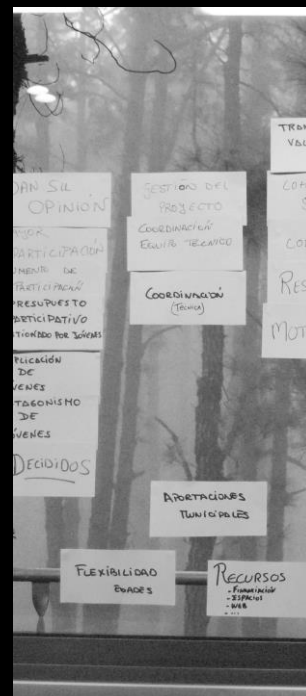 DAN SU
OPINIÓN
PARTICIPACIÓN
DE
PARTICIPACIÓN
PRESUPUESTO
PARTICIPATIVO
POR JÓVENES
PLICACIÓN
DE
VENES
TAGONISMO
DE
VENES
DECIDIDOS
GESTIÓN DEL
PROYECTO
COORDINACIÓN
EQUIPO TÉCNICO
COORDINACIÓN
(TÉCNICA)
APORTACIONES
MUNICIPALES
FLEXIBILIDAD
EDADES
RECURSOS
- FINANCIACIÓN
- ESPACIOS
- WEB
- ...
TRAN
VAL
RES
MOT